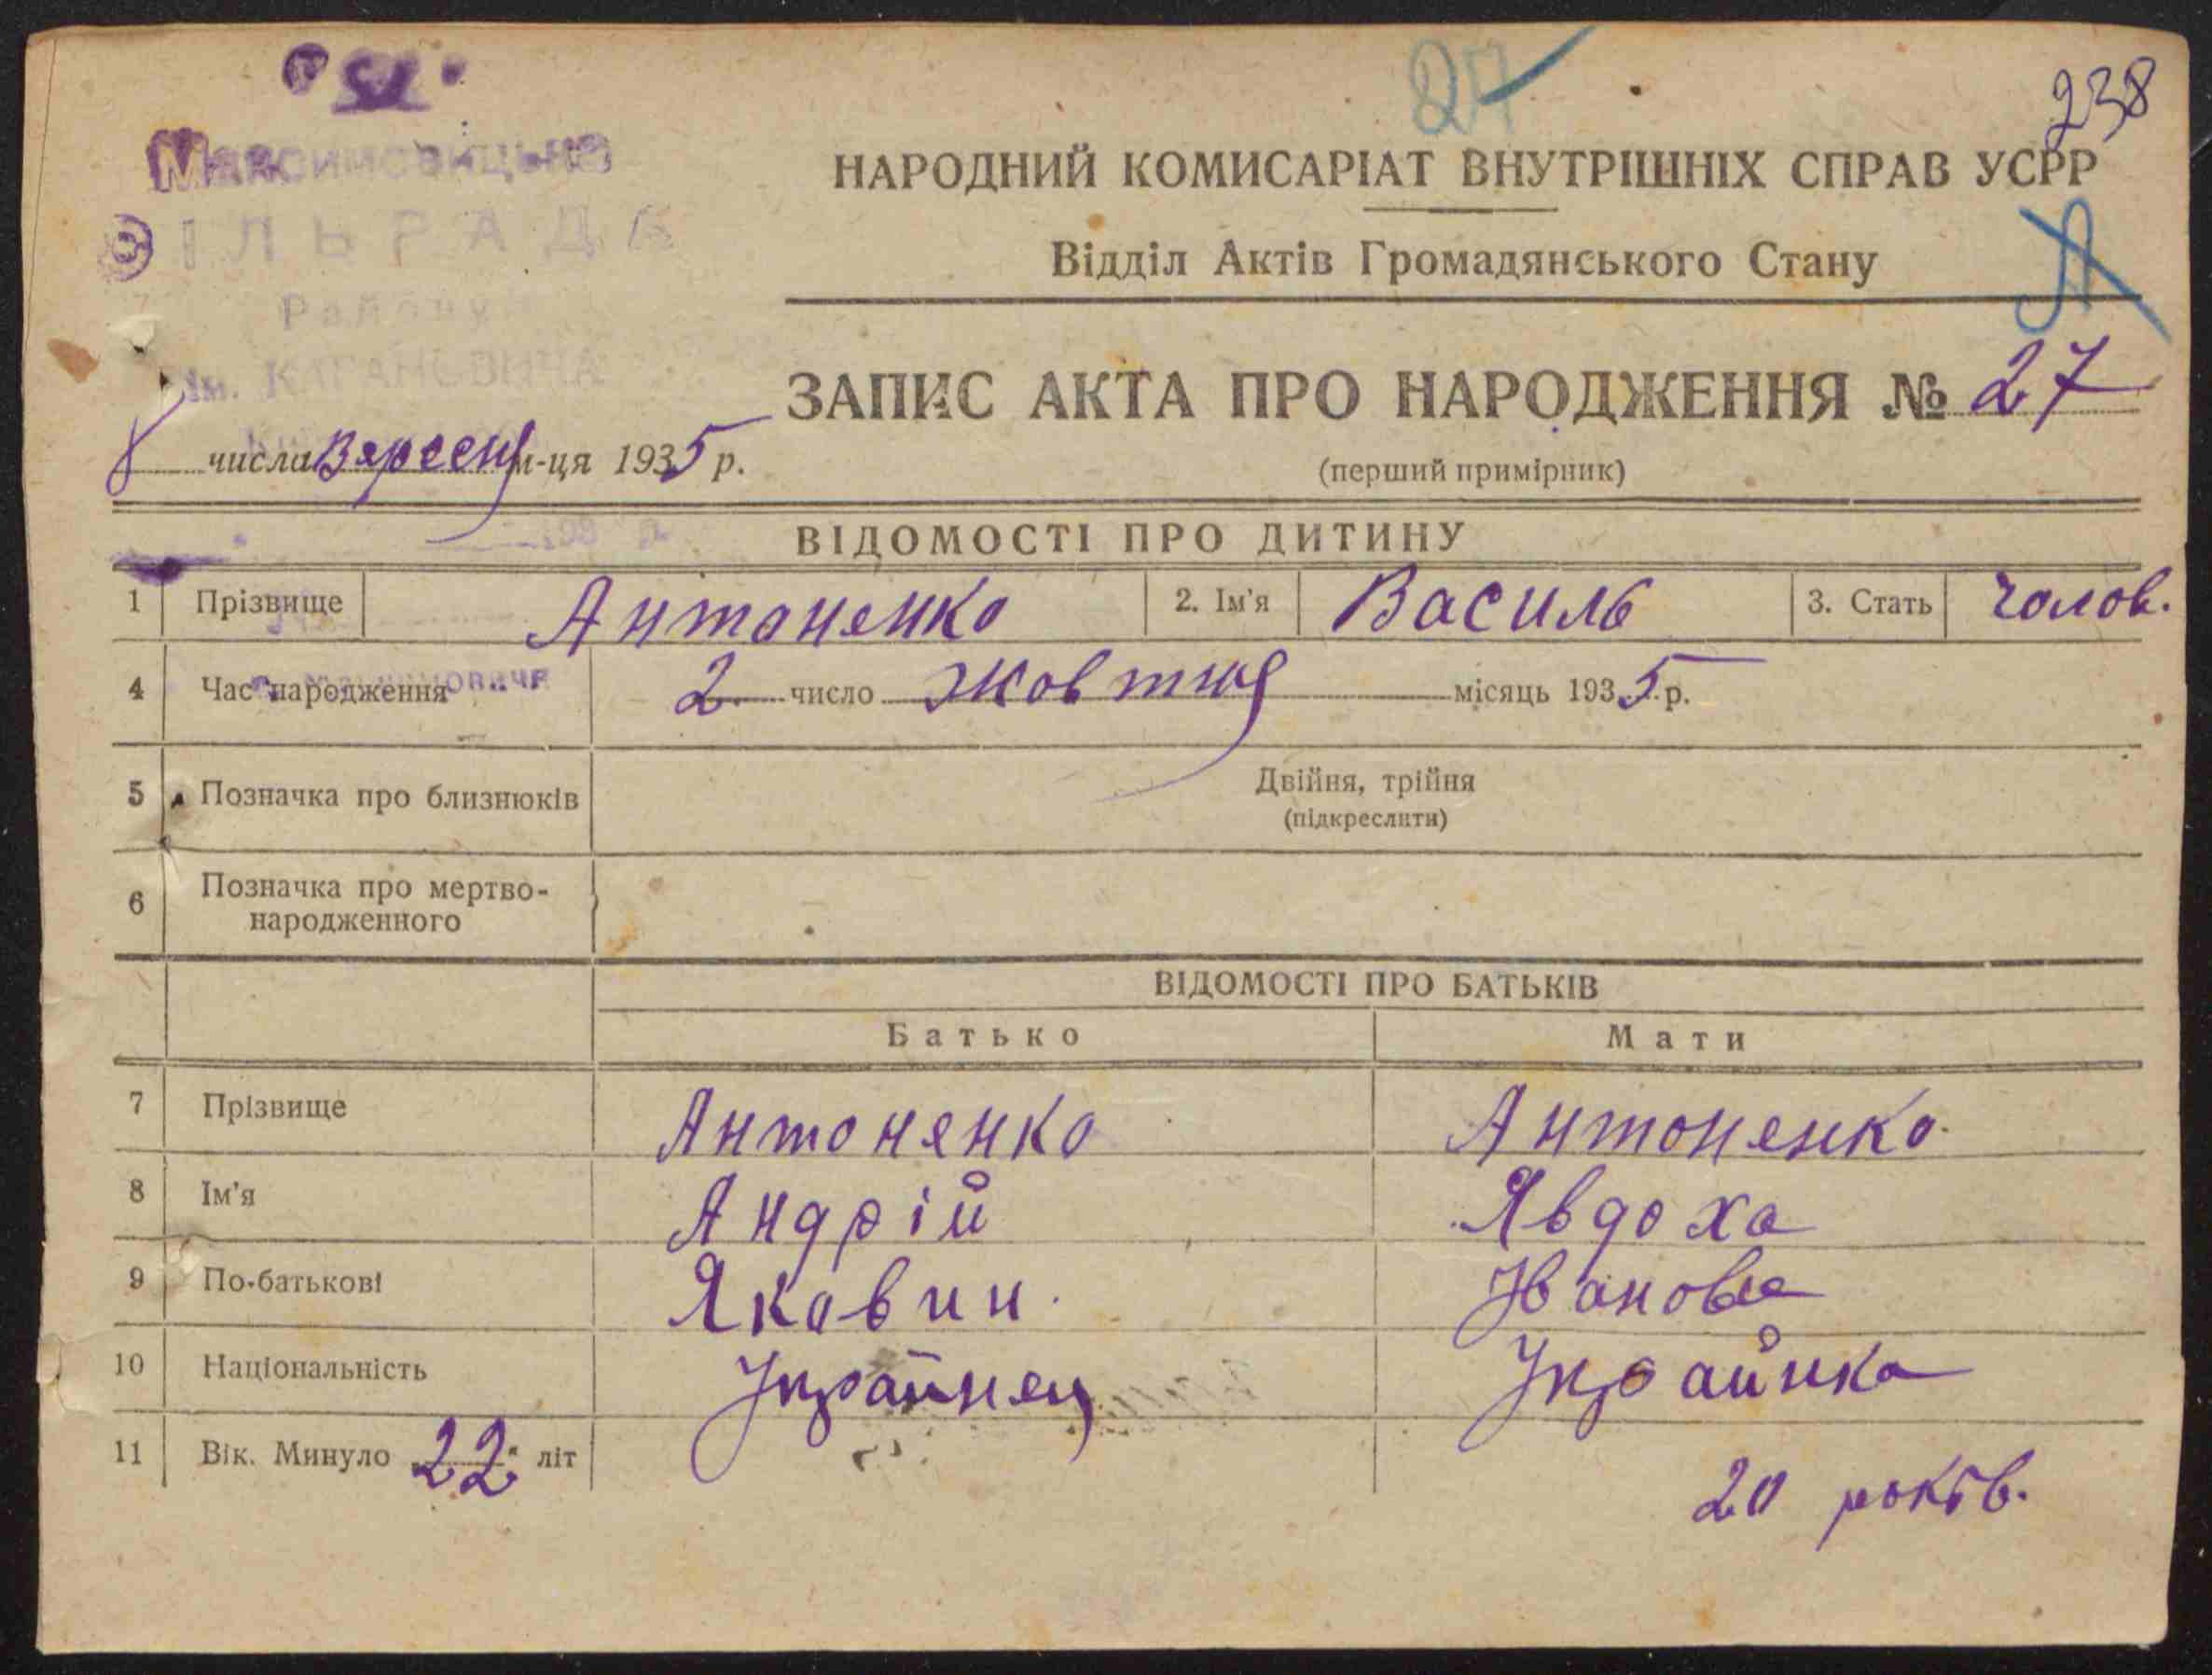 27
238
Максимовицька
СІЛЬРАДА
Району
ім. КАГАНОВИЧА
НАРОДНИЙ КОМИСАРІАТ ВНУТРІШНІХ СПРАВ УСРР
Відділ Актів Громадянського Стану
ЗАПИС АКТА ПРО НАРОДЖЕННЯ № 27
(перший примірник)
8 числа Вяресня м-ця 1935 р.
ВІДОМОСТІ ПРО ДИТИНУ
1 Прізвище Антонянко 2. Ім'я Василь 3. Стать чолов.
4 Час народження 2. число Жовтня місяць 1935 р.
5 Позначка про близнюків Двійня, трійня
(підкреслити)
6 Позначка про мертво-
народженного
ВІДОМОСТІ ПРО БАТЬКІВ
Батько Мати
7 Прізвище Антонянко Антонянко
8 Ім'я Андрій Явдоха
9 По-батькові Якович Іванова
10 Національність Україняц Українка
11 Вік. Минуло 22 літ 20 років.